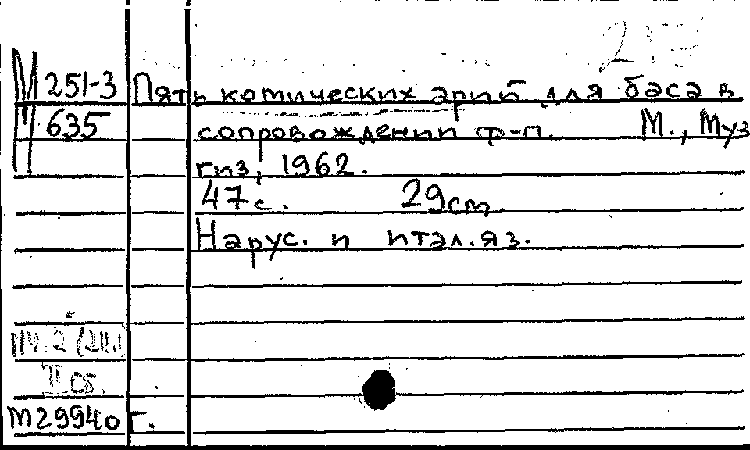 М 251-3 Пять комических арий для баса в
М 635 сопровождении ф-п. М., Муз
гиз, 1962.
47 с. 29 cm
На рус. и итал. яз.
М29940 г.